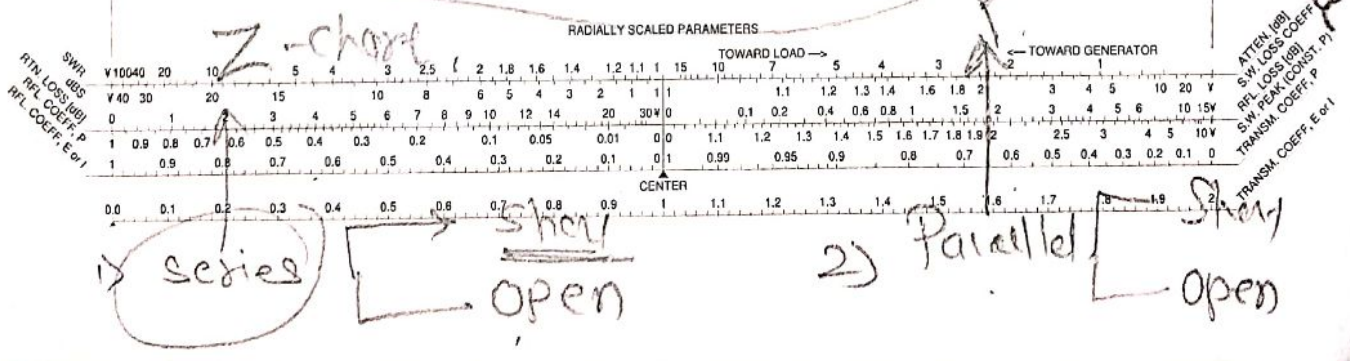 RADIALLY SCALED PARAMETERS
Z-chart
TOWARD LOAD —> <— TOWARD GENERATOR
SWR
dBS
RTN. LOSS [dB]
RFL. COEFF, P
RFL. COEFF, E or I
ATTEN. [dB]
S.W. LOSS COEFF
RFL. LOSS [dB]
S.W. PEAK (CONST. P)
TRANSM. COEFF, P
TRANSM. COEFF, E or I
¥ 100 40 20 10 5 4 3 2.5 2 1.8 1.6 1.4 1.2 1.1 1 15 10 7 5 4 3 2 1
¥ 40 30 20 15 10 8 6 5 4 3 2 1 1 1 1.1 1.2 1.3 1.4 1.6 1.8 2 3 4 5 10 20 ¥
0 1 2 3 4 5 6 7 8 9 10 12 14 20 30 ¥ 0 0.1 0.2 0.4 0.6 0.8 1 1.5 2 3 4 5 6 10 15 ¥
1 0.9 0.8 0.7 0.6 0.5 0.4 0.3 0.2 0.1 0.05 0.01 0 0 1.1 1.2 1.3 1.4 1.5 1.6 1.7 1.8 1.9 2 2.5 3 4 5 10 ¥
1 0.9 0.8 0.7 0.6 0.5 0.4 0.3 0.2 0.1 0 1 0.99 0.95 0.9 0.8 0.7 0.6 0.5 0.4 0.3 0.2 0.1 0
CENTER
0.0 0.1 0.2 0.3 0.4 0.5 0.6 0.7 0.8 0.9 1 1.1 1.2 1.3 1.4 1.5 1.6 1.7 1.8 1.9 2
1) series
Open
2) Parallel
Open